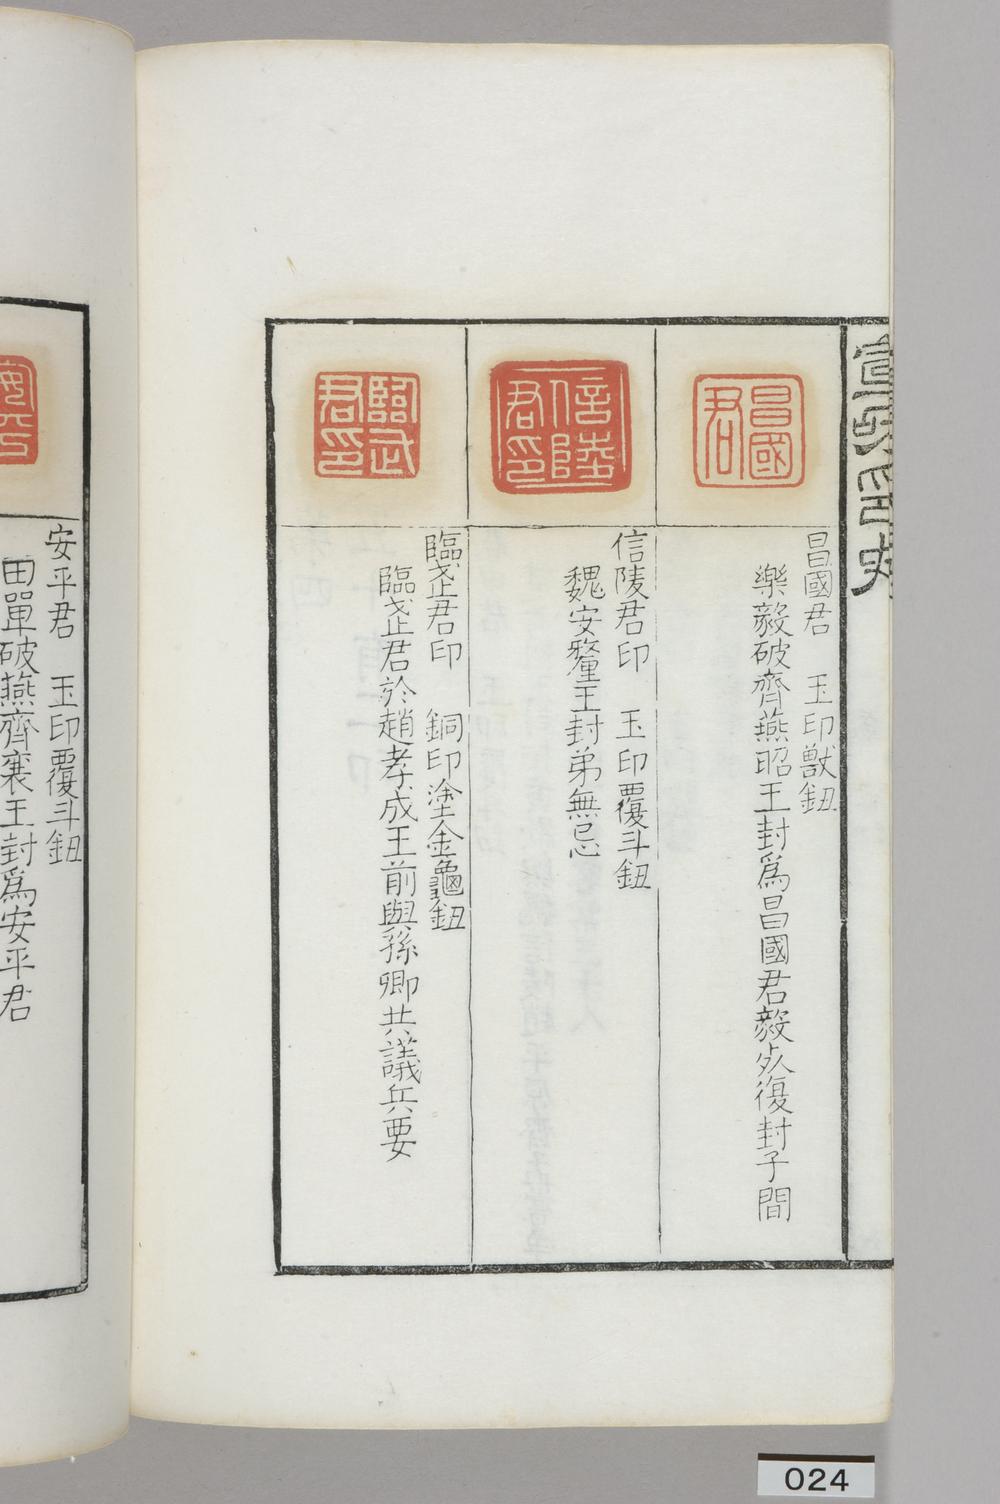 宣和印史
昌國君
昌國君　玉印獸鈕
樂毅破齊燕昭王封爲昌國君毅㱙復封子間
信陵君印
信陵君印　玉印覆斗鈕
魏安釐王封弟無忌
臨武君印
臨武君印　銅印塗金龜鈕
臨武君於趙孝成王前與孫卿共議兵要
安平君　玉印覆斗鈕
田單破燕齊襄王封爲安平君
024